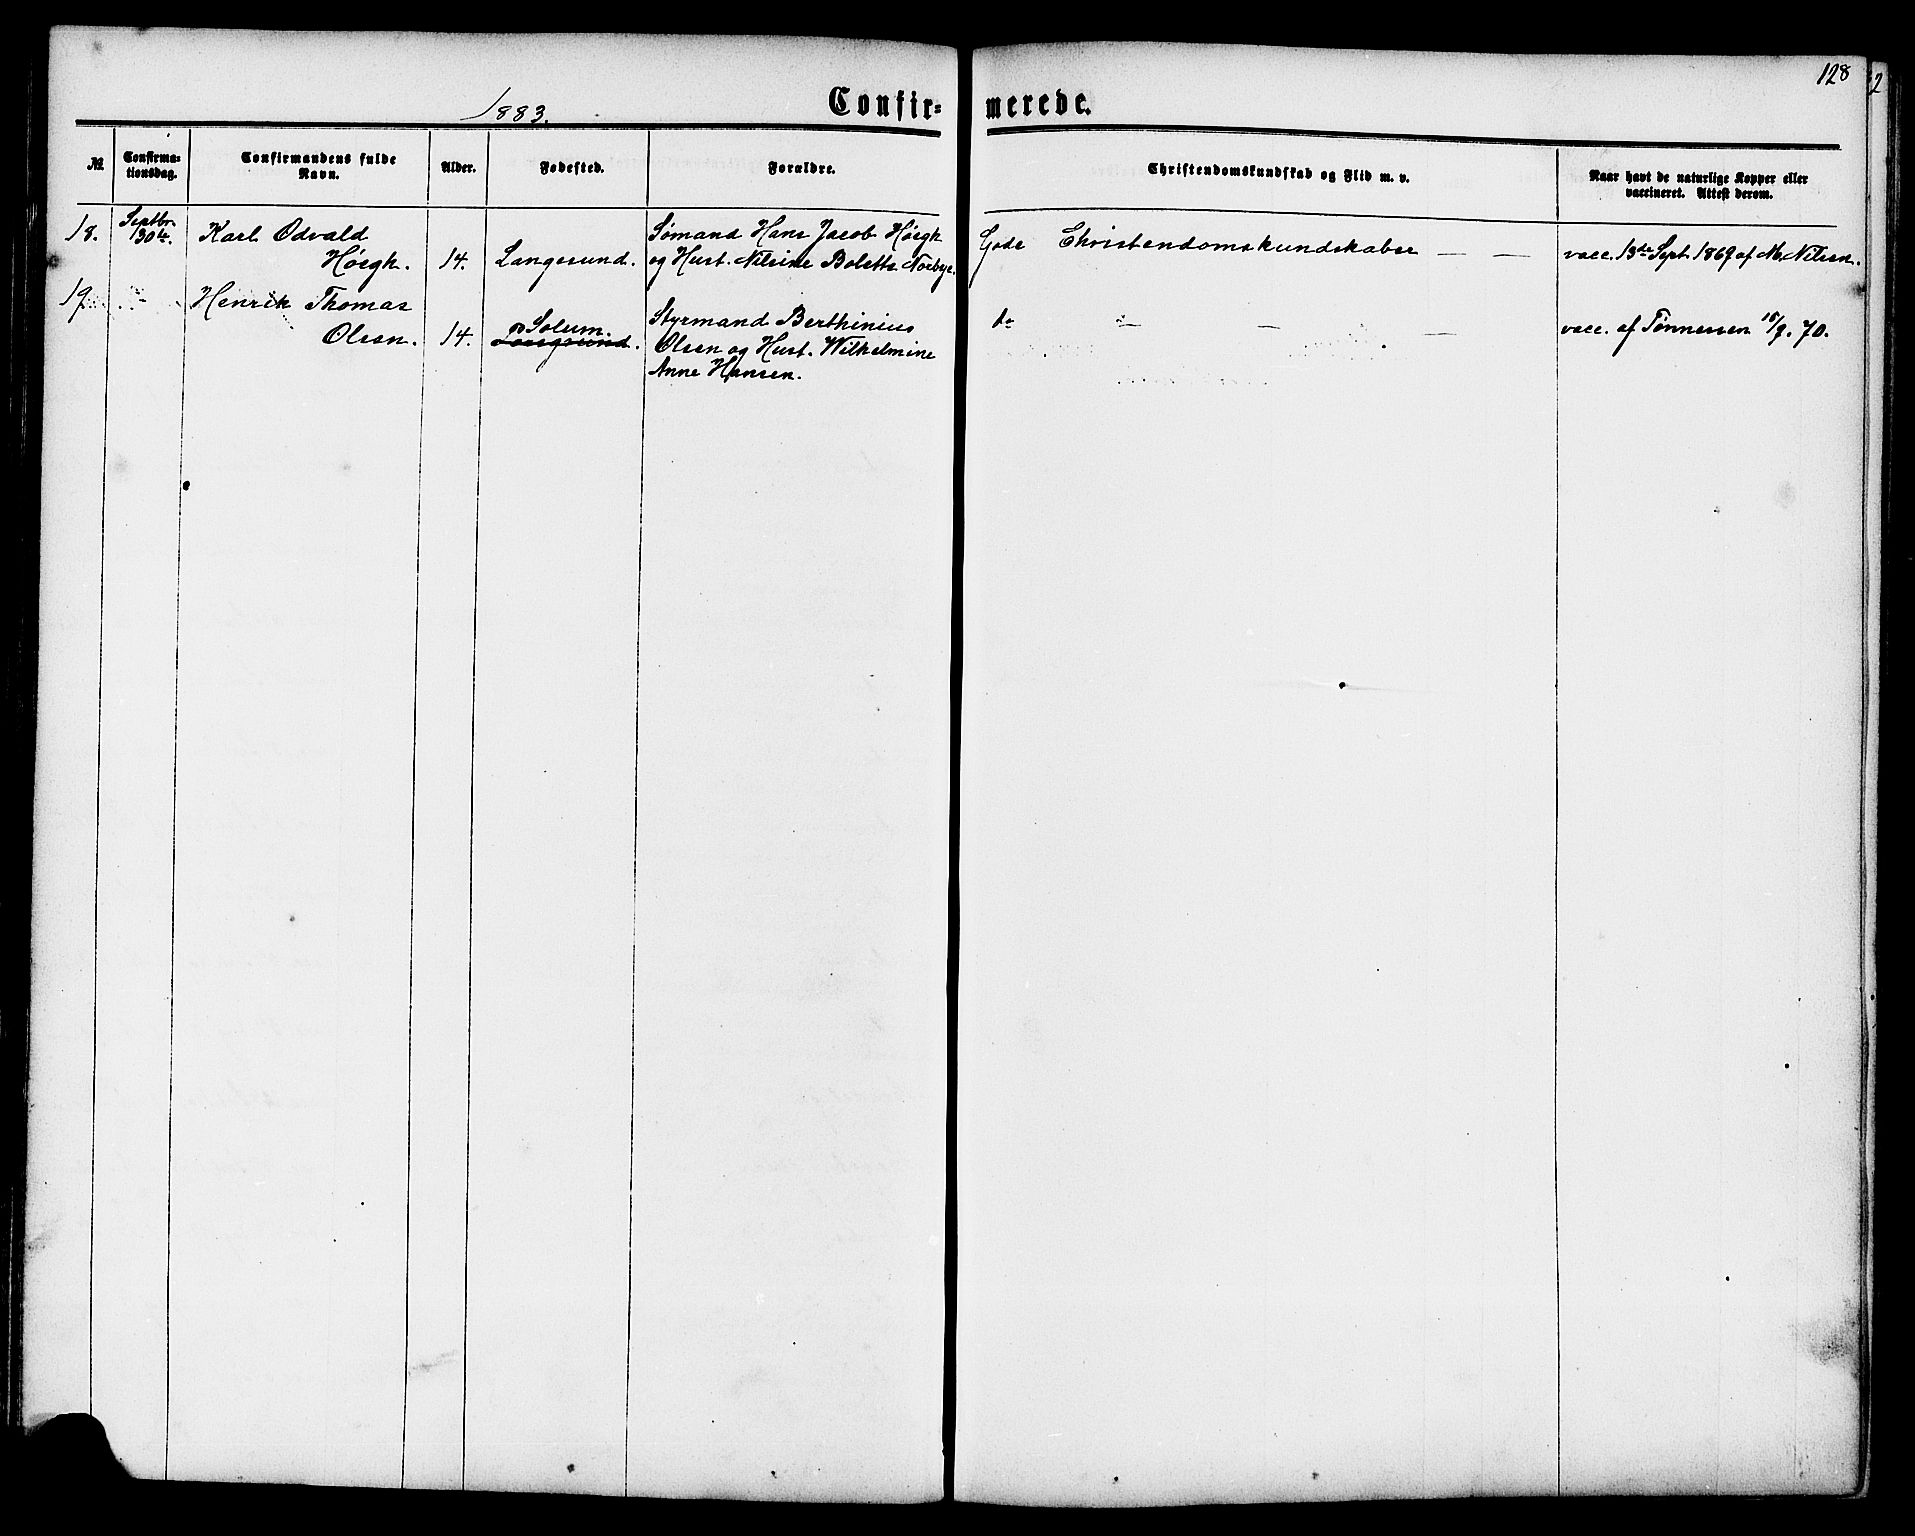 128
2
1883.
Confir=
merede.
№
Confirma=
tionsdag.
Confirmandens fulde
Navn.
Alder.
Fødested.
Forældre.
Christendomskundskab og Flid m. v.
Naar havt de naturlige Kopper eller
vaccineret. Attest derom.
18.
Septbr.
30te.
Karl Odvald
Høegh.
14.
Langesund.
Sømand Hans Jacob Høegh
og Hust. Nilsine Bolette Norbye.
Gode Christendomskundskaber — —
vacc. 13de Sept. 1869 af M. Nilsen.
19.
Henrik Thomas
Olsen.
14.
Solum.
Langesund.
Styrmand Berthinius
Olsen og Hust. Wilhelmine
Anne Hansen.
do — — —
vacc. af Tønnessen /9. 70.